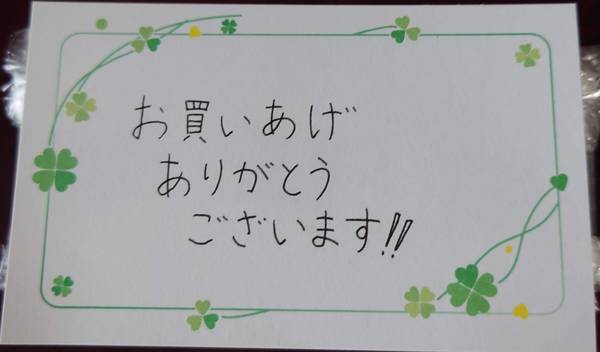 お買いあげ
ありがとう
ございます!!